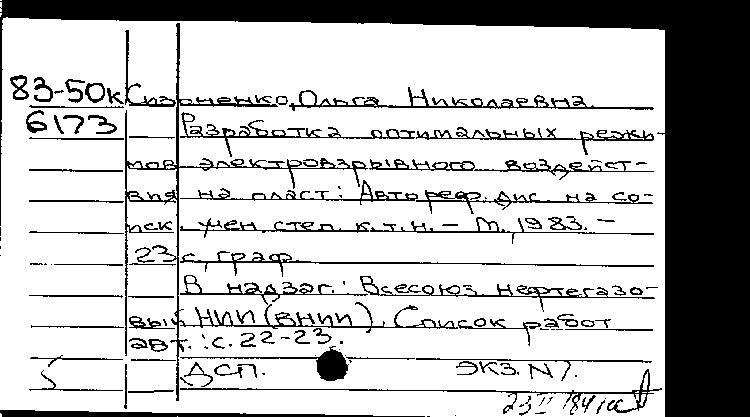 83-50к Сизоненко, Ольга Николаевна.
6173 Разработка оптимальных режи-
мов электровзрывного воздейст-
вия на пласт: Автореф. дис. на со-
иск. учен. степ. к.т.н. – М., 1983. –
23 с., граф.
В надзаг.: Всесоюз. нефтегазо-
вый НИИ (ВНИИ). Список работ
авт.: с. 22-23.
ДСП. ЭКЗ. N 7.
23 II 184